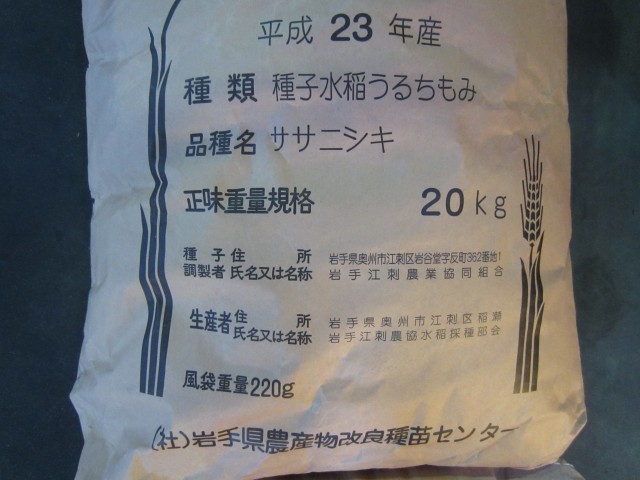 平成 23 年産
種類 種子水稲うるちもみ
品種名 ササニシキ
正味重量規格 20kg
種子 住所 岩手県奥州市江刺区岩谷堂字反町362番地1
調製者 氏名又は名称 岩手江刺農業協同組合
生産者 住所 岩手県奥州市江刺区稲瀬
氏名又は名称 岩手江刺農協水稲採種部会
風袋重量220g
(社)岩手県農産物改良種苗センター